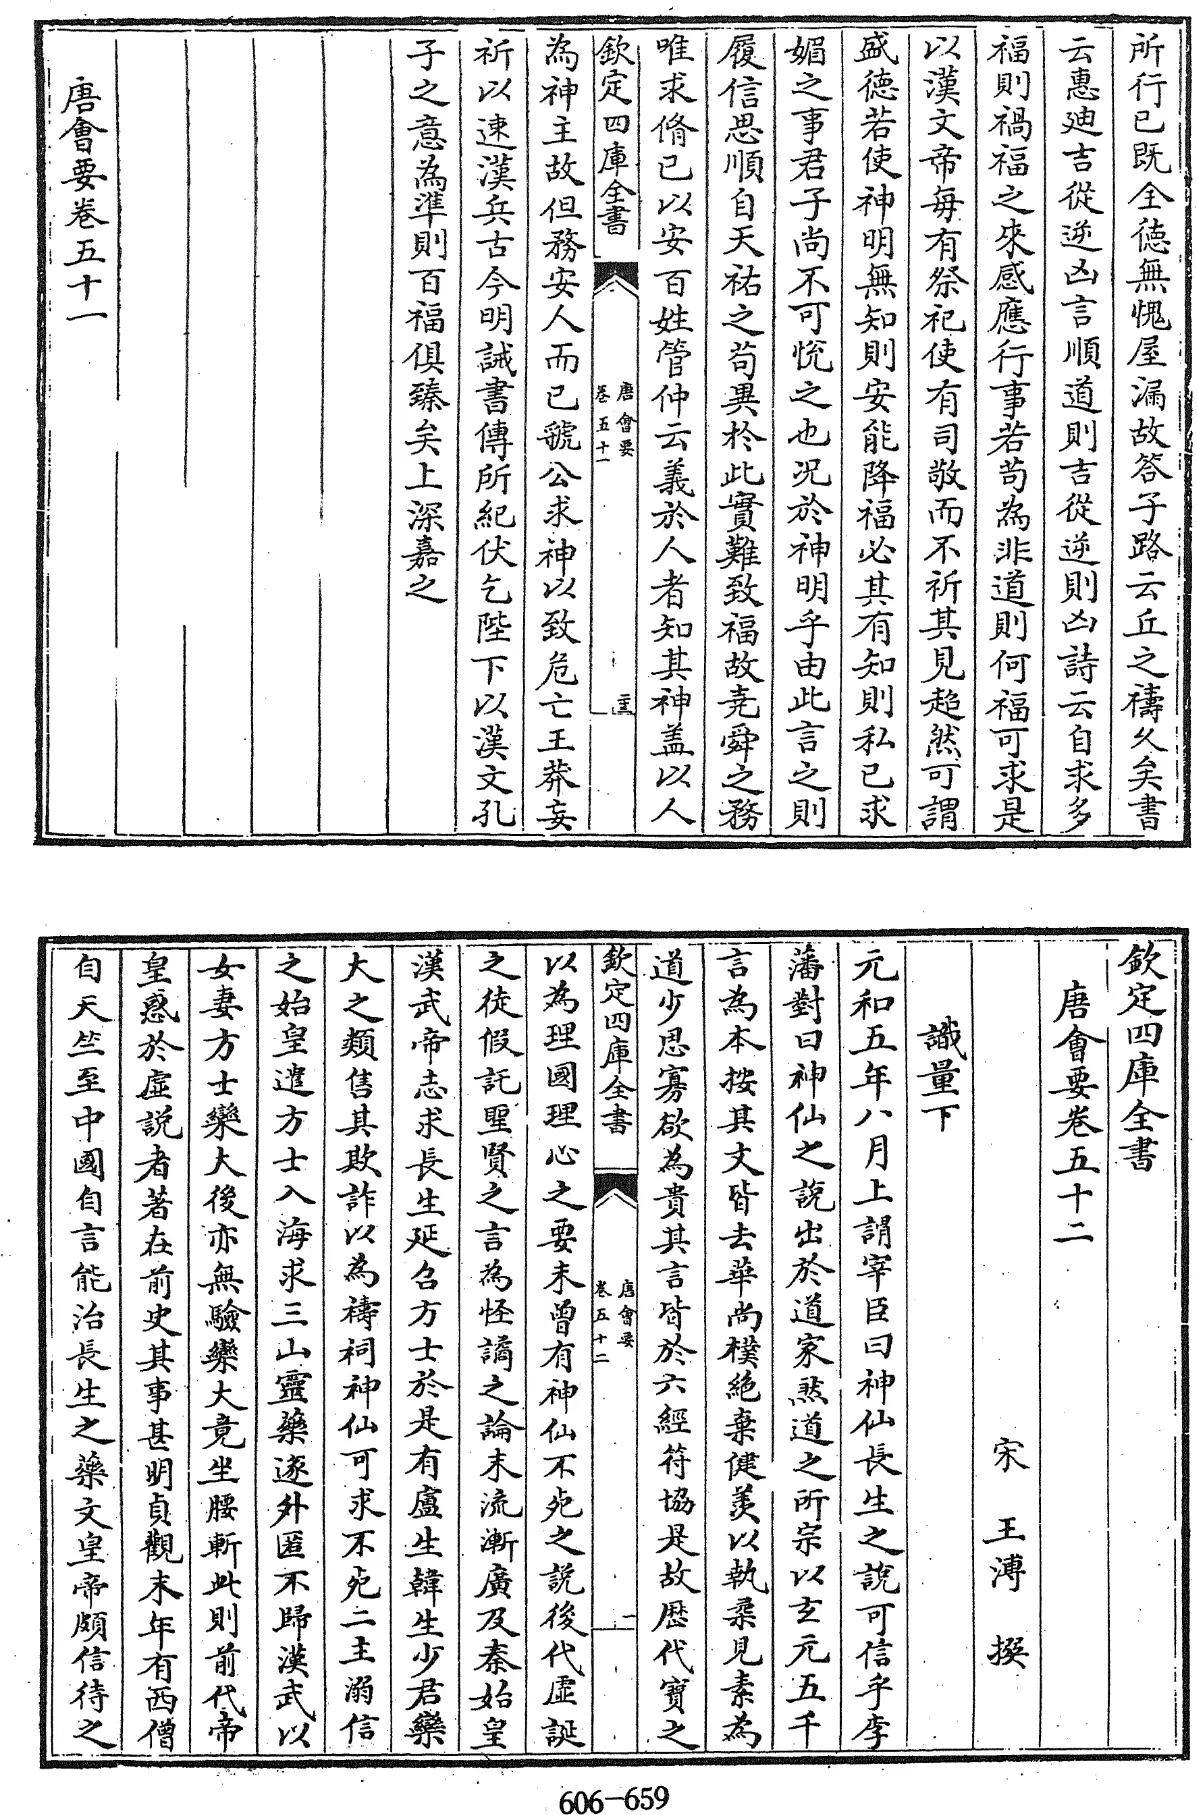 所行已既全德無愧屋漏故答子路云丘之禱久矣書
云惠廸吉從逆凶言順道則吉從逆則凶詩云自求多
福則禍福之來感應行事若苟為非道則何福可求是
以漢文帝每有祭祀使有司敬而不祈其見超然可謂
盛德若使神明無知則安能降福必其有知則私已求
媚之事君子尚不可悅之也况於神明乎由此言之則
履信思順自天祐之苟異於此實難致福故堯舜之務
唯求脩已以安百姓管仲云義於人者知其神盖以人
欽定四庫全書
唐會要
卷五十一
為神主故但務安人而已虢公求神以致危亡王莽妄
祈以速漢兵古今明誡書傳所紀伏乞陛下以漢文孔
子之意為準則百福俱臻矣上深嘉之
唐會要卷五十一
欽定四庫全書
唐會要卷五十二
宋 王溥 撰
識量下
元和五年八月上謂宰臣曰神仙長生之說可信乎李
藩對曰神仙之說出於道家然道之所宗以玄元五千
言為本按其文皆去華尚樸絶棄健羨以執柔見素為
道少思寡欲為貴其言皆於六經符協是故歴代寶之
欽定四庫全書
唐會要
卷五十二
一
以為理國理心之要未曾有神仙不死之說後代虛誕
之徒假託聖賢之言為怪譎之論末流漸廣及秦始皇
漢武帝志求長生延召方士於是有盧生韓生少君欒
大之類售其欺詐以為禱祠神仙可求不死二主溺信
之始皇遣方士入海求三山靈藥逐外匿不歸漢武以
女妻方士欒大後亦無驗欒大竟坐腰斬此則前代帝
皇惑於虛説者著在前史其事甚明貞觀末年有西僧
自天竺至中國自言能治長生之藥文皇帝頗信待之
606-659